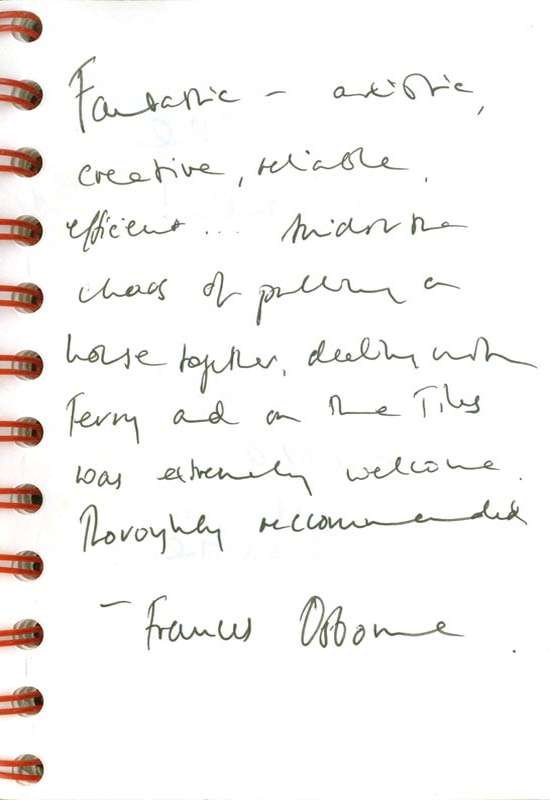 Fantastic – artistic,
creative, reliable,
efficient... Amidst the
chaos of pulling a
house together, dealing with
Terry and On the Tiles
was extremely welcome.
Thoroughly reccommended
– Frances Osborne.